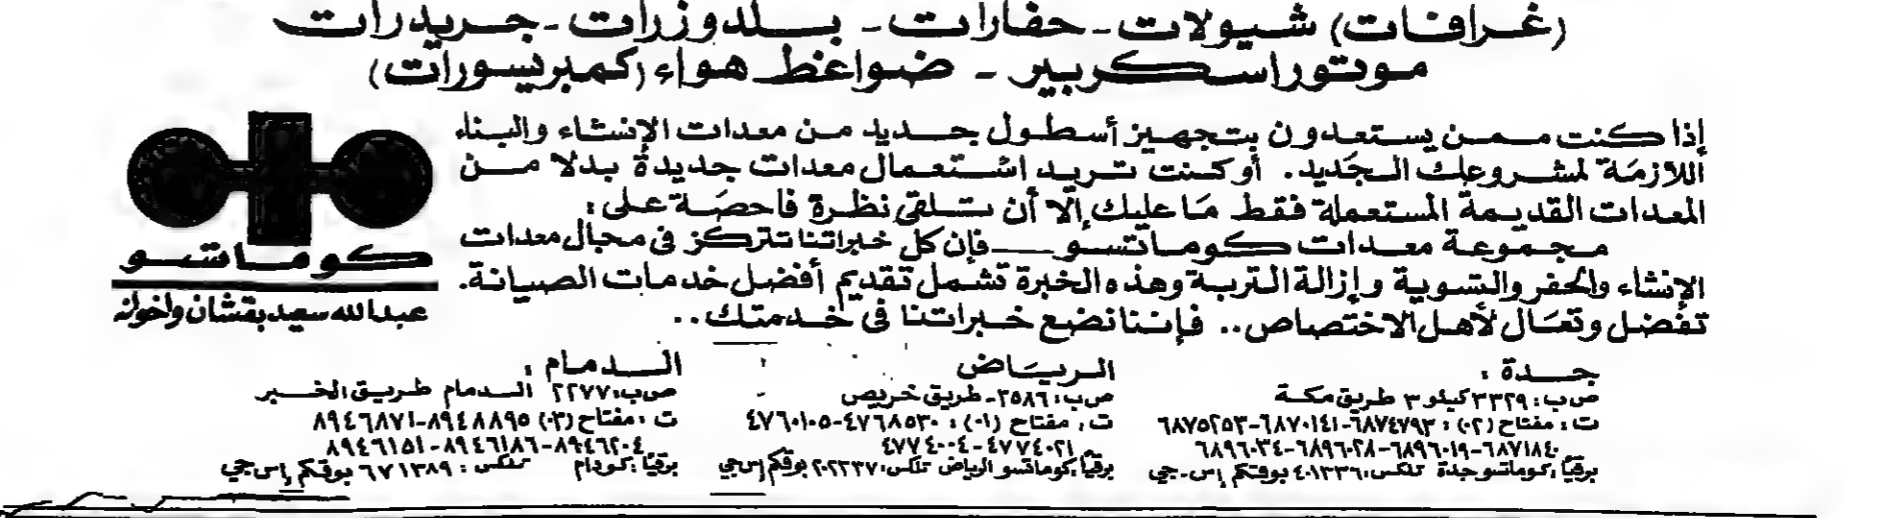 (غرافات) شيولات - حفارات - بلدوزرات - جريدرات
موتوراسكريبر - ضواغط هواء (كمبريسورات)
إذا كنت ممن يستعدون بتجهيز أسطول جديد من معدات الإنشاء والبناء
اللازمة لمشروعك الجديد. أو كنت تريد استعمال معدات جديدة بدلا من
المعدات القديمة المستعملة فقط ما عليك إلا أن تلقي نظرة فاحصة على:
مجموعة معدات كوماتسو — فإن كل خبراتنا تتركز في مجال معدات
الإنشاء والحفر والتسوية وإزالة التربة وهذه الخبرة تشمل تقديم أفضل خدمات الصيانة.
تفضل وتعال لأهل الاختصاص.. فإننا نضع خبراتنا في خدمتك..
كوماتسو
عبدالله سعيد بقشان وإخوانه
جدة :
ص ب: ٣٣٢٩ كيلو ٣ طريق مكة
ت: مفتاح (٠٢): ٦٨٧٤٧٩٣-٦٨٧٠١٤١-٦٨٧٥٢٥٣
٦٨٧١٨٤٠-٦٨٩٦٠١٩-٦٨٩٦٠٢٨-٦٨٩٦٠٣٤
برقيًا: كوماتسو جدة تلكس: ٤٠١٣٣٦ بوقكم إس-جي
الرياض
ص ب: ٢٥٨٦- طريق خريص
ت: مفتاح (٠١): ٤٧٦٨٥٣٠-٤٧٦٠١٠٥
٤٧٧٤٠٢١-٤٧٧٤٠٠٤
برقيًا: كوماتسو الرياض تلكس: ٢٠٢٢٣٧ بوقكم إس جي
الدمام :
ص ب: ٢٢٧٧ الدمام طريق الخبر
ت: مفتاح (٠٣) ٨٩٤٨٨٩٥-٨٩٤٦٨٧١
٨٩٤٦٢٠٤-٨٩٤٦١٨٦-٨٩٤٦١٥١
برقيًا: كودام تلكس: ٦٧١٣٨٩ بوقكم إس جي